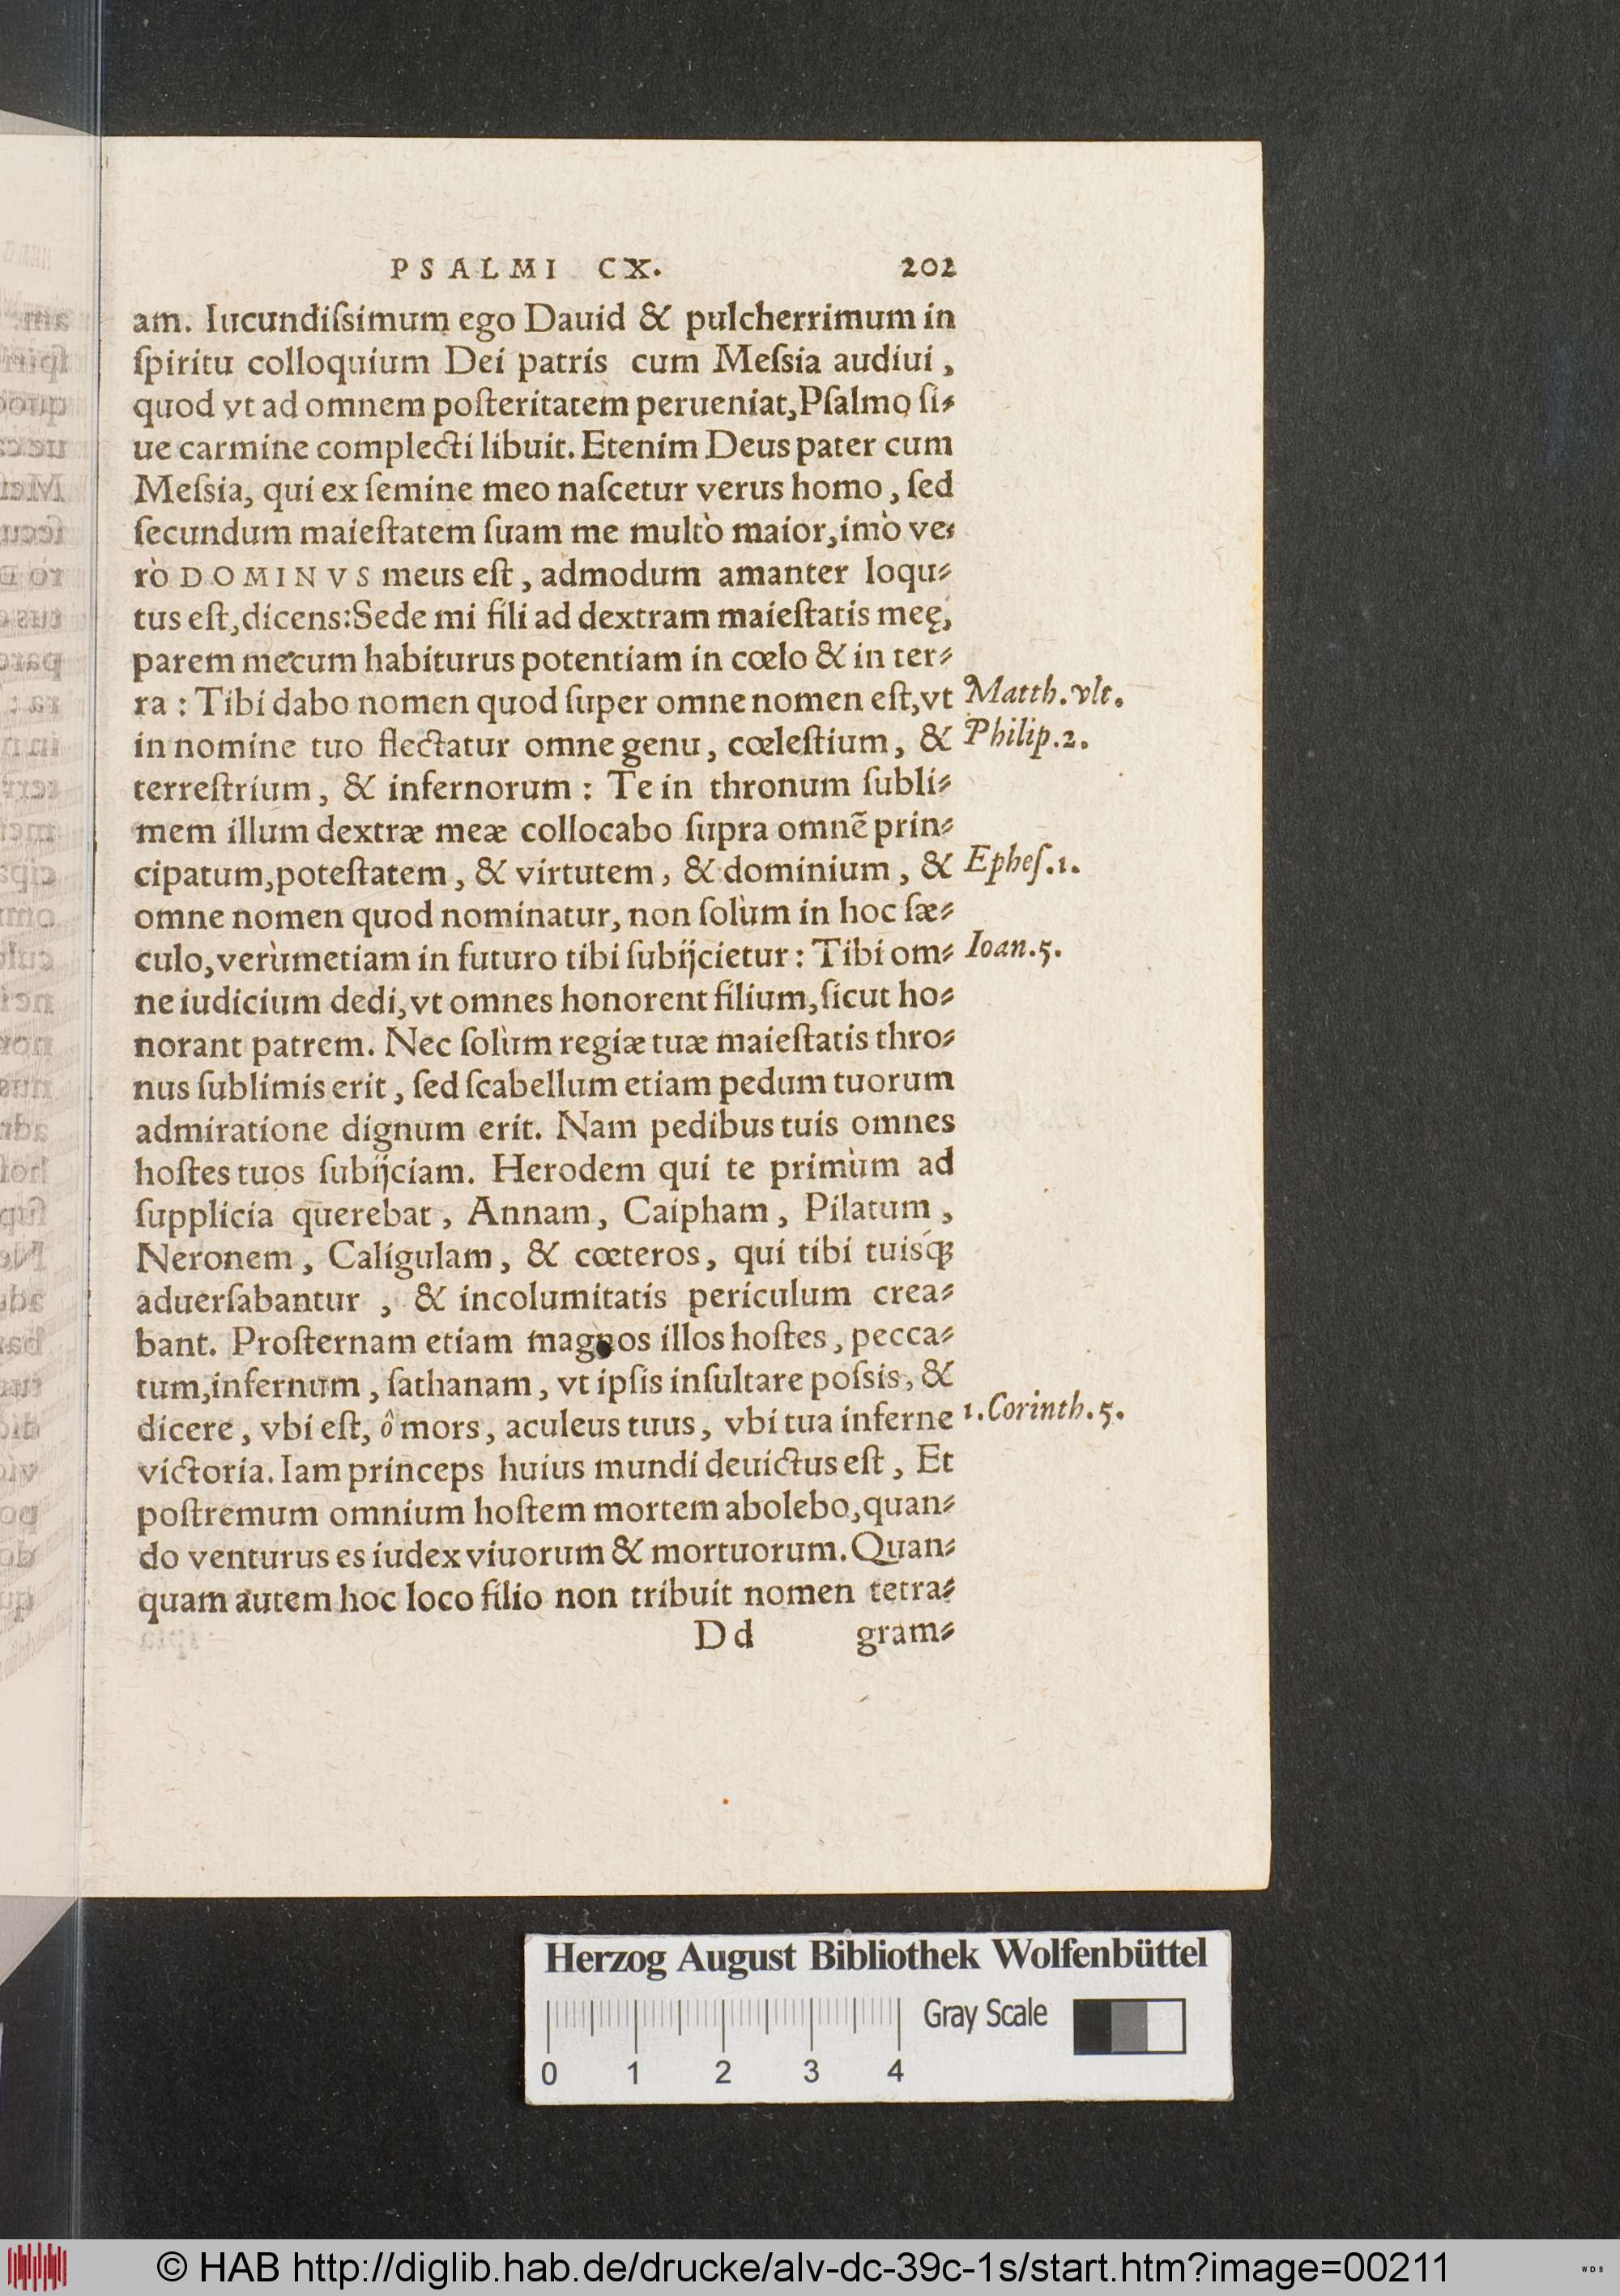 PSALMI CX. 202
am. Iucundiſsimum ego Dauid & pulcherrimum in
ſpiritu colloquium Dei patris cum Meſsia audiui,
quod vt ad omnem poſteritatem perueniat, Pſalmo ſi⸗
ue carmine complecti libuit. Etenim Deus pater cum
Meſsia, qui ex ſemine meo naſcetur verus homo, ſed
ſecundum maieſtatem ſuam me multò maior, imò ve⸗
rò DOMINVS meus eſt, admodum amanter loqu⸗
tus eſt, dicens: Sede mi fili ad dextram maieſtatis meę,
parem mecum habiturus potentiam in cœlo & in ter⸗
ra : Tibi dabo nomen quod ſuper omne nomen eſt, vt
Matth. vlt.
in nomine tuo flectatur omne genu, cœleſtium, &
Philip. 2.
terreſtrium, & infernorum : Te in thronum ſubli⸗
mem illum dextræ meæ collocabo ſupra omnẽ prin⸗
cipatum, poteſtatem, & virtutem, & dominium, &
Epheſ. 1.
omne nomen quod nominatur, non ſolùm in hoc ſæ⸗
culo, verùmetiam in futuro tibi ſubijcietur : Tibi om⸗
Ioan. 5.
ne iudicium dedi, vt omnes honorent filium, ſicut ho⸗
norant patrem. Nec ſolùm regiæ tuæ maieſtatis thro⸗
nus ſublimis erit, ſed ſcabellum etiam pedum tuorum
admiratione dignum erit. Nam pedibus tuis omnes
hoſtes tuos ſubijciam. Herodem qui te primùm ad
ſupplicia querebat, Annam, Caipham, Pilatum,
Neronem, Caligulam, & cœteros, qui tibi tuisq́;
aduerſabantur, & incolumitatis periculum crea⸗
bant. Proſternam etiam magnos illos hoſtes, pecca⸗
tum, infernum, ſathanam, vt ipſis inſultare poſsis, &
dicere, vbi eſt, ô mors, aculeus tuus, vbi tua inferne
1. Corinth. 5.
victoria. Iam princeps huius mundi deuictus eſt, Et
poſtremum omnium hoſtem mortem abolebo, quan⸗
do venturus es iudex viuorum & mortuorum. Quan⸗
quam autem hoc loco filio non tribuit nomen tetra⸗
Dd gram⸗
Herzog August Bibliothek Wolfenbüttel
Gray Scale
0 1 2 3 4
© HAB http://diglib.hab.de/drucke/alv-dc-39c-1s/start.htm?image=00211
WDB